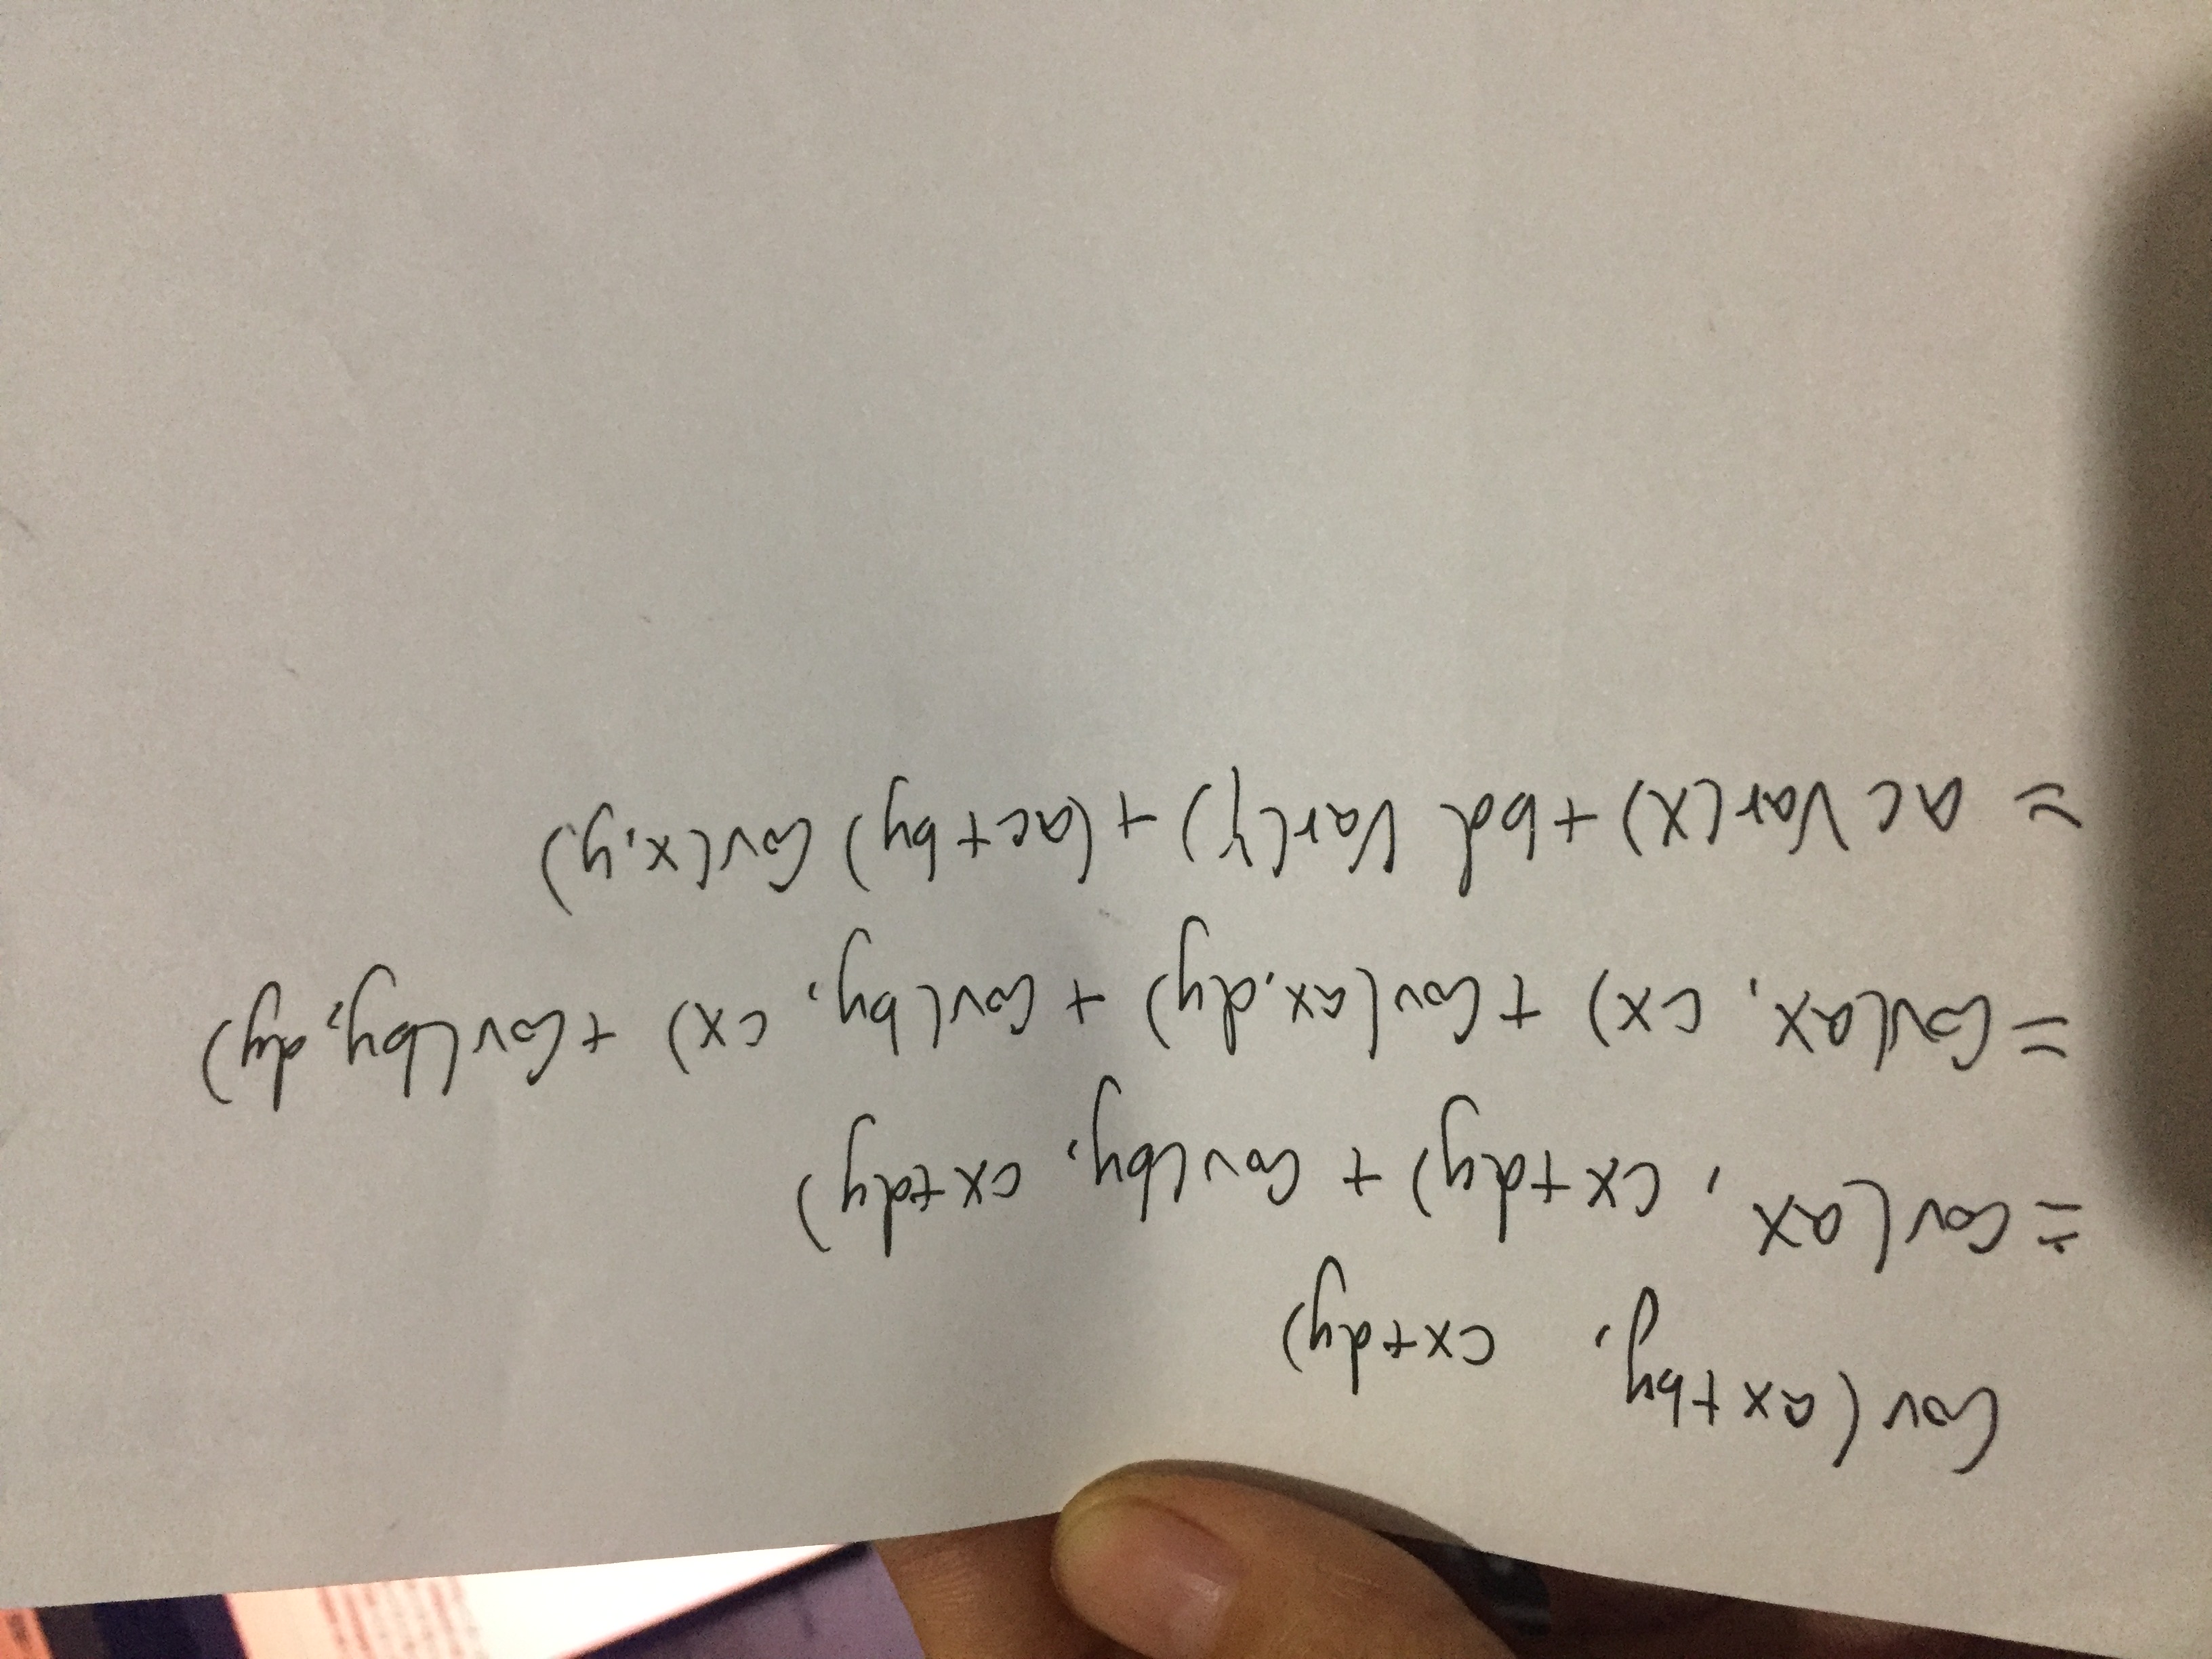 Cov(ax+by, cx+dy)
= Cov(ax, cx+dy) + Cov(by, cx+dy)
= Cov(ax, cx) + Cov(ax, dy) + Cov(by, cx) + Cov(by, dy)
= ac Var(x) + bd Var(y) + (ac+by) Cov(x,y)